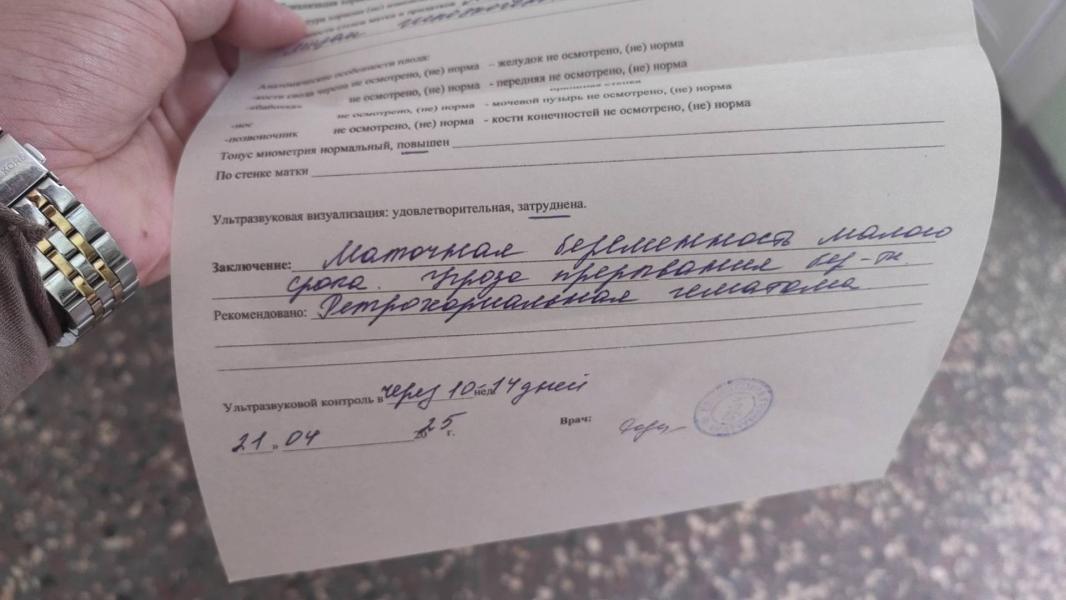 Анатомические особенности плода:
-кости свода черепа не осмотрено, (не) норма - желудок не осмотрено, (не) норма
не осмотрено, (не) норма - передняя не осмотрено, (не) норма
-нос не осмотрено, (не) норма - мочевой пузырь не осмотрено, (не) норма
-позвоночник не осмотрено, (не) норма - кости конечностей не осмотрено, (не) норма
Тонус миометрия нормальный, повышен
По стенке матки
Ультразвуковая визуализация: удовлетворительная, затруднена.
Заключение: Маточная беременность малого
срока. Угроза прерывания бер-ти.
Рекомендовано: Ретрохориальная гематома
Ультразвуковой контроль в через 10-14 дней нед
21 " 04 2025 г. Врач: